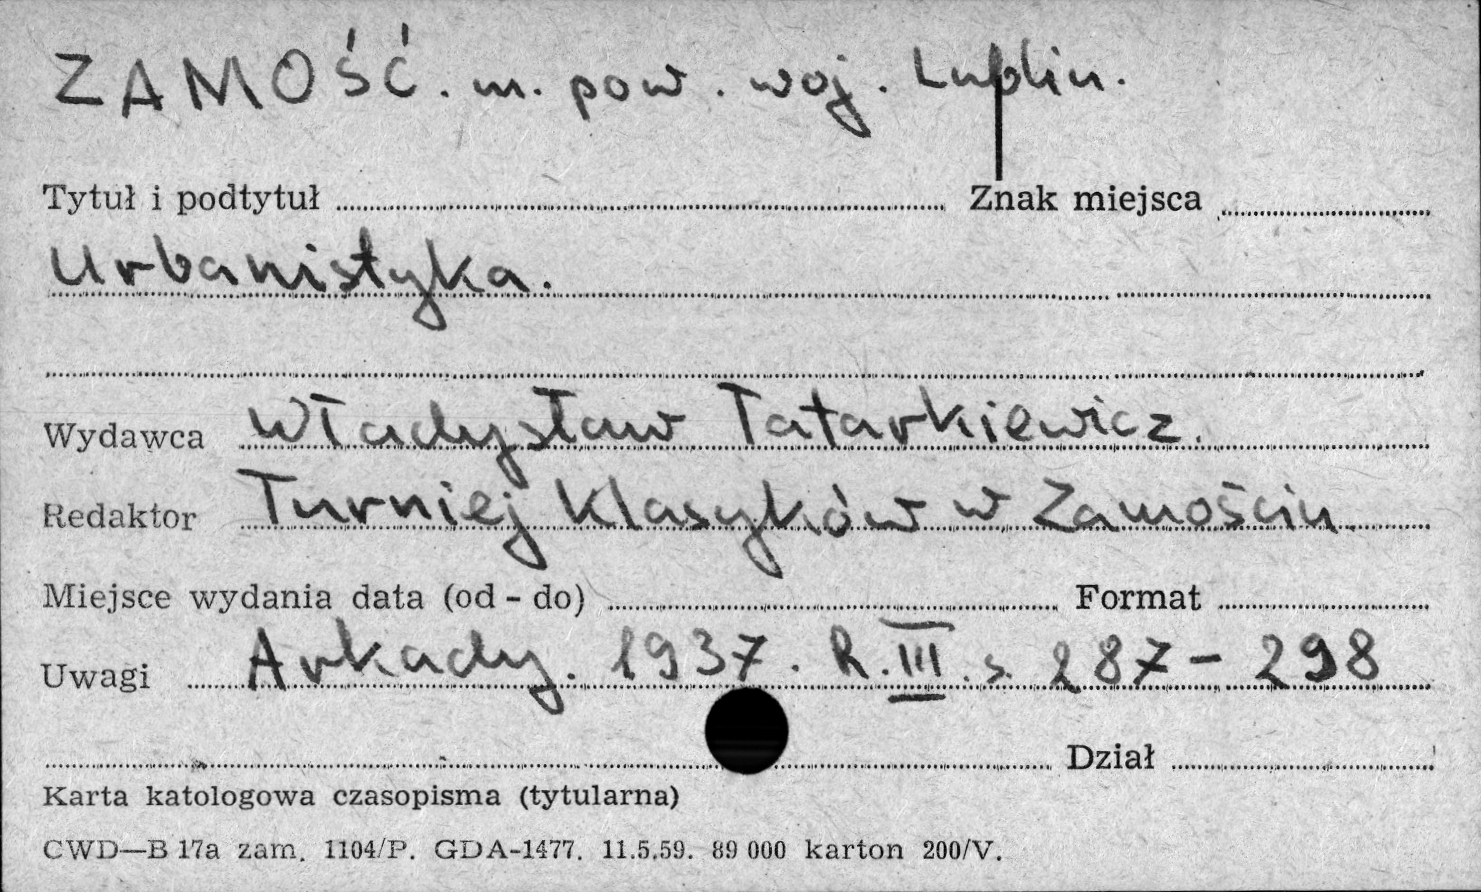 ZAMOŚĆ. m. pow. woj. Lublin.
Tytuł i podtytuł Znak miejsca
Urbanistyka.
Wydawca Władysław Tatarkiewicz.
Redaktor Turniej klasyków w Zamościu.
Miejsce wydania data (od - do) Format
Uwagi Arkady. 1937. R. III. s. 287 - 298
Dział
Karta katologowa czasopisma (tytularna)
CWD—B 17a zam. 1104/P. GDA-1477. 11.5.59. 89 000 karton 200/V.